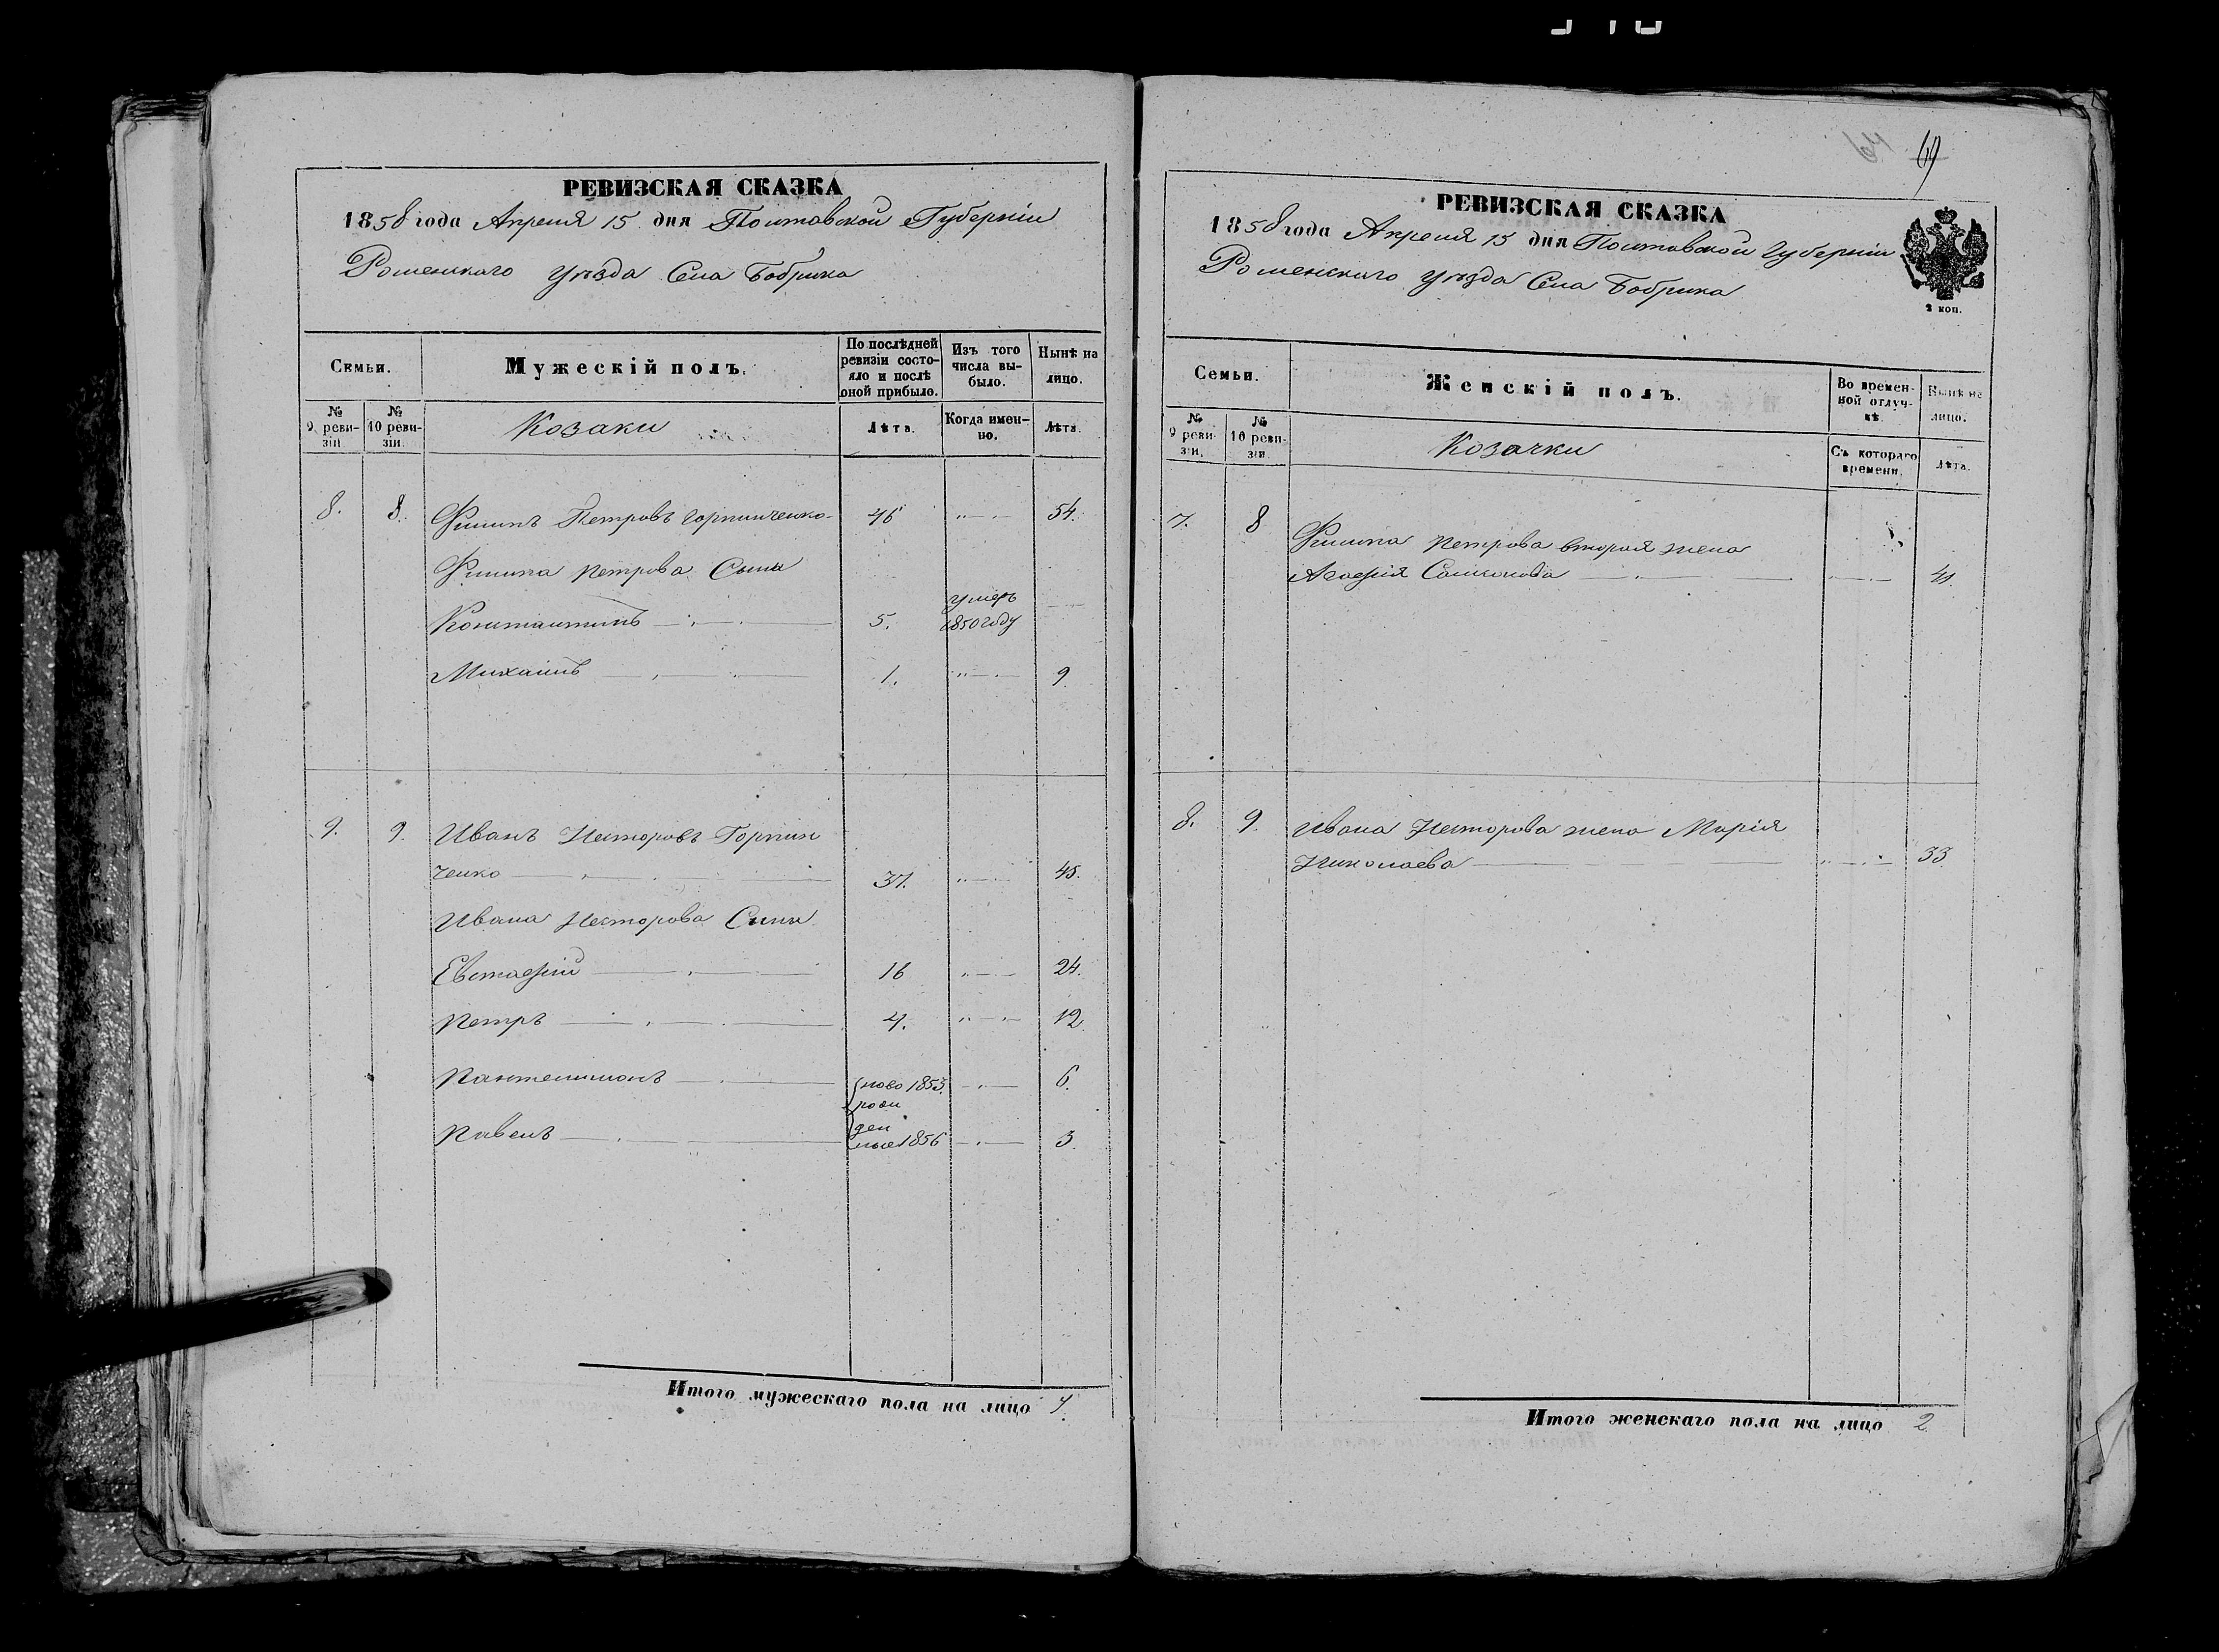 64 69
РЕВИЗСКАЯ СКАЗКА
1858 года Апреля 15 дня Полтавской Губерніи
Роменскаго уѣзда Села Бобрика
Семьи.
Мужескій полъ.
По послѣдней ревизіи состояло и послѣ оной прибыло.
Изъ того числа выбыло.
Нынѣ на лицо.
№ 9 ревизіи
№ 10 ревизіи.
Козаки
Лѣта.
Когда именно.
Лѣта.
8. 8. Филипъ Петровъ Горпинченко 46 54.
Филипа Петрова Сыны
Константинъ 5. умеръ 1850 году
Михаилъ 1. 9
9. 9. Иванъ Несторовъ Горпин
ченко 37. 45.
Ивана Несторова Сыны
Евстафій 16 24.
Петръ 4. 12
Пантелимонъ ново 1853. 6.
рож
Павелъ ден
ные 1856 3.
Итого мужескаго пола на лицо 7.
РЕВИЗСКАЯ СКАЗКА
1858 года Апреля 15 дня Полтавской Губерніи
Роменскаго уѣзда Села Бобрика
2 коп.
Семьи.
Женскій полъ.
Во временной отлучкѣ.
Нынѣ на лицо.
№ 9 ревизіи.
№ 10 ревизіи.
Козачки
Съ котораго времени.
Лѣта.
7. 8 Филипа Петрова вторая жена
Агафія 41.
8. 9. Ивана Несторова жена Марія
Николаева 33.
Итого женскаго пола на лицо 2